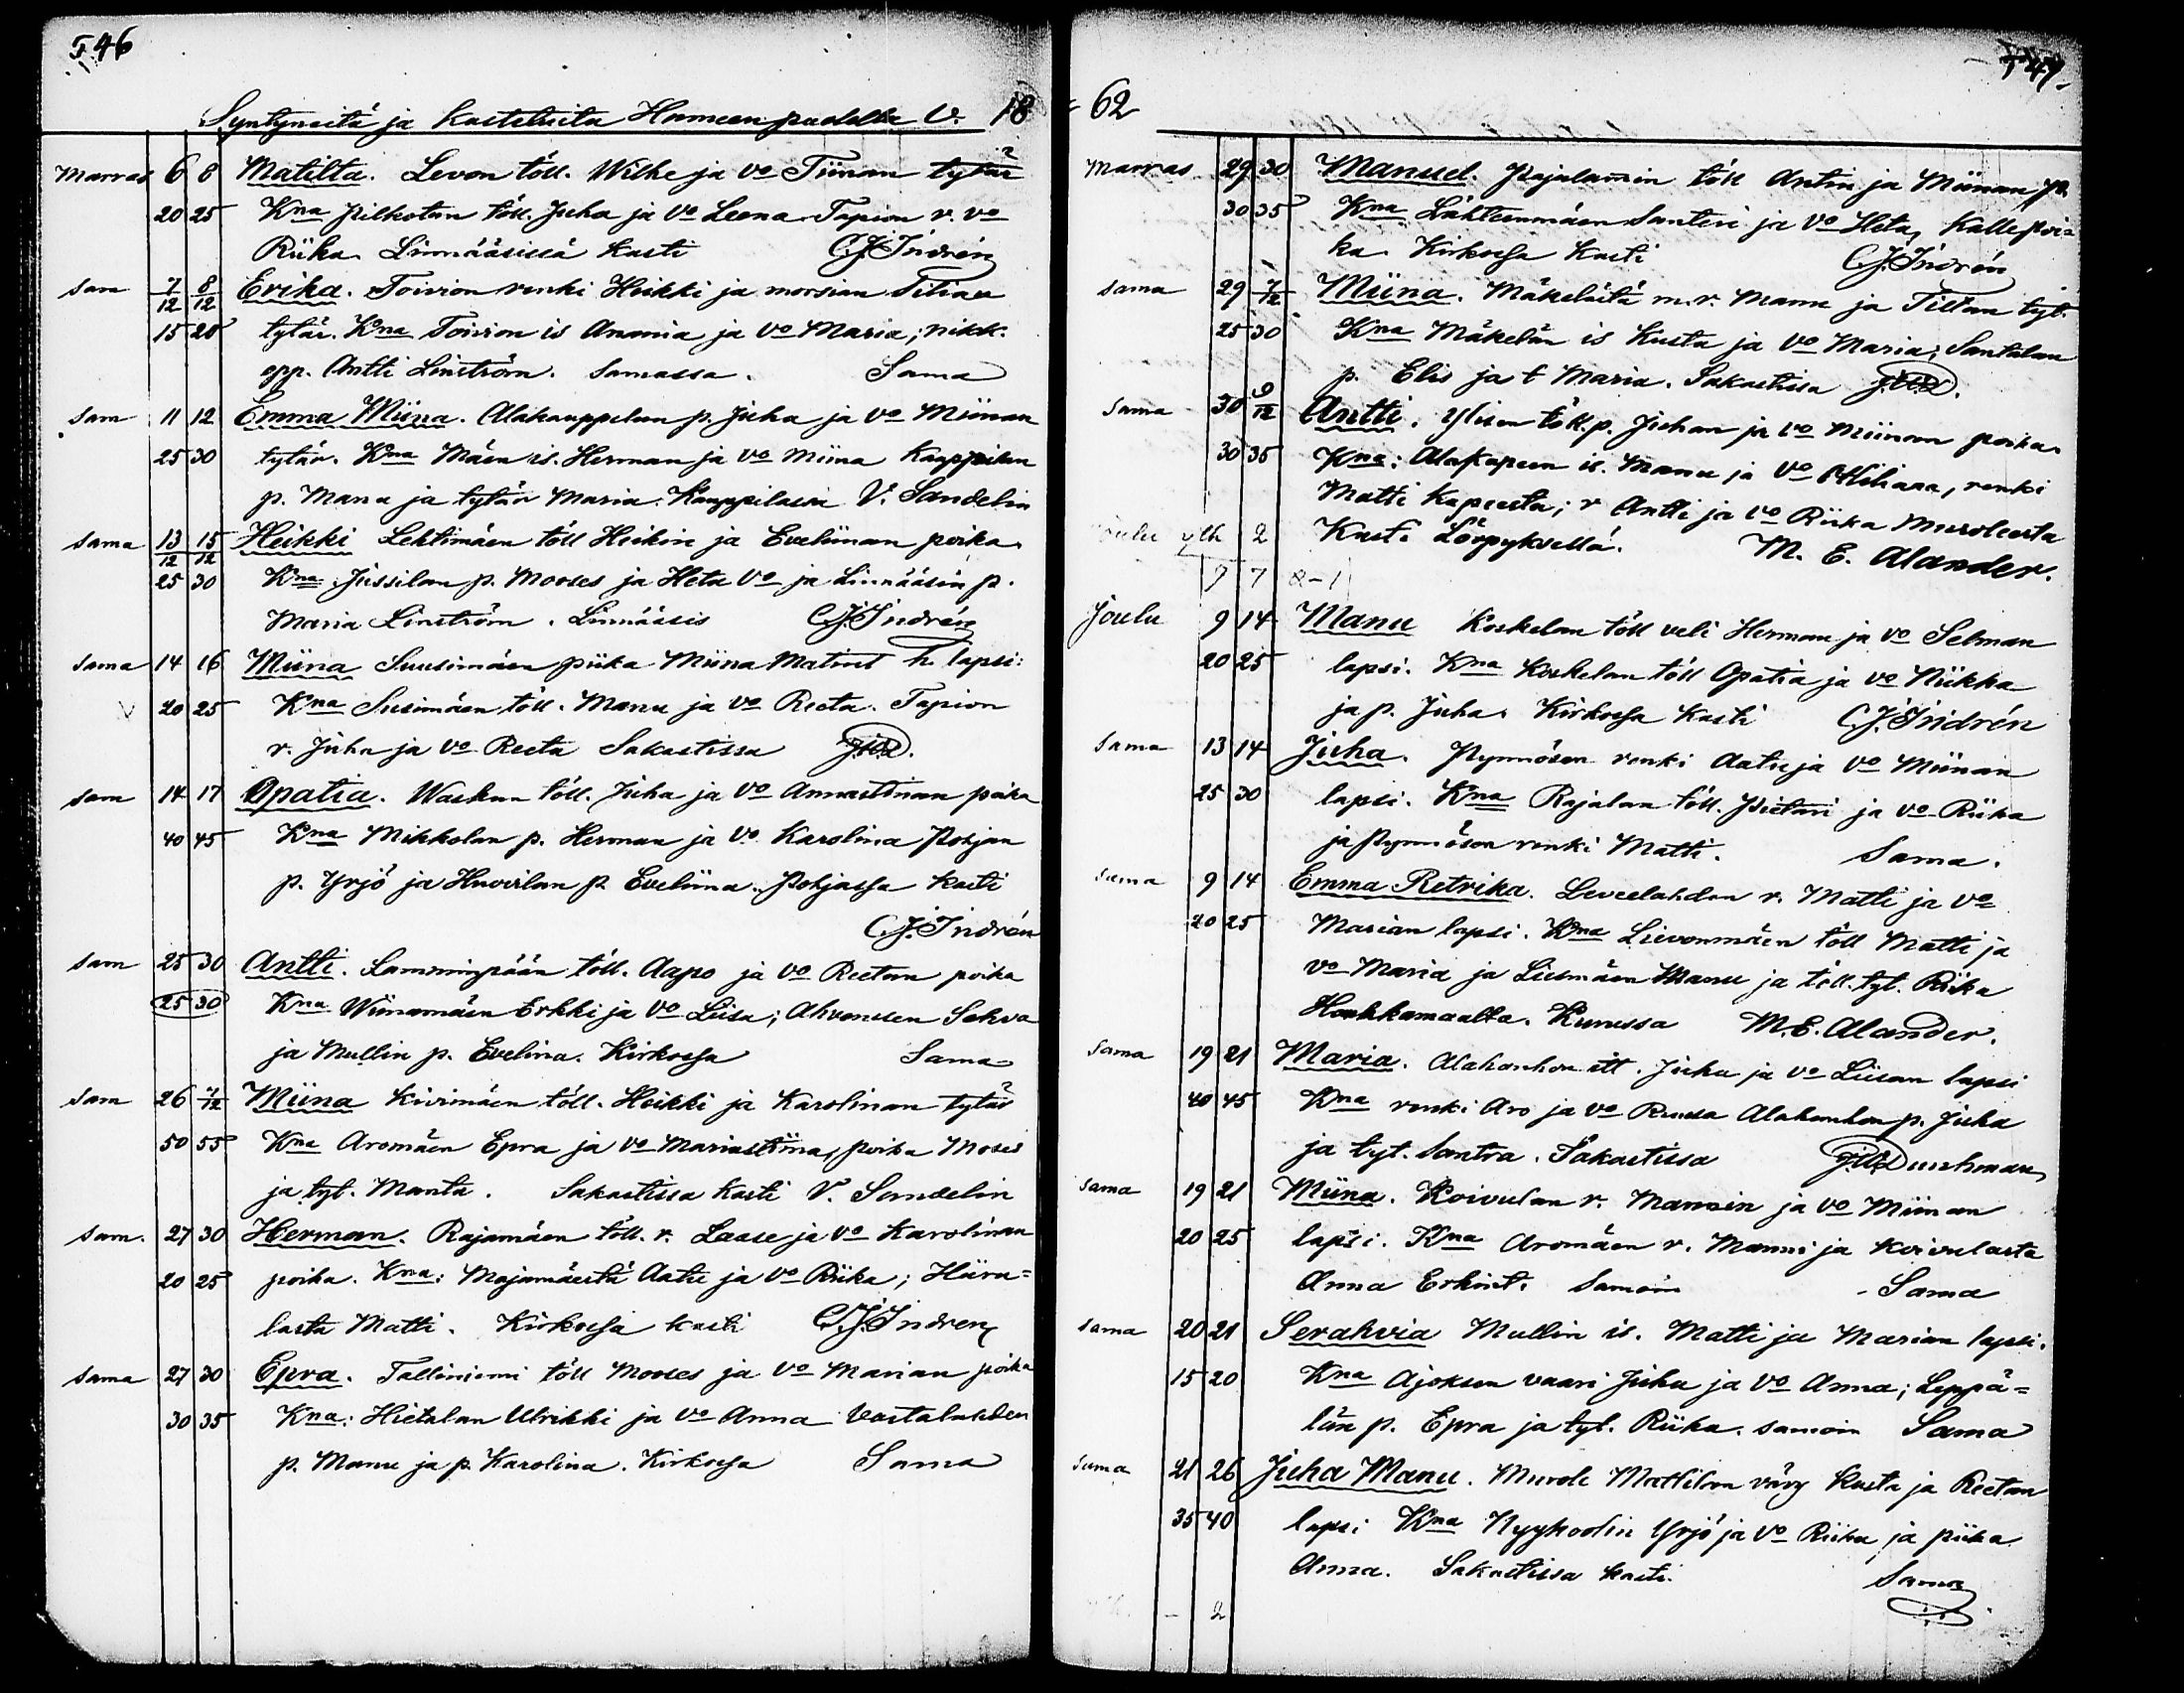 546
Syntyneitä ja kastetuita Hämeen puolella V. 18
Marras 6 8 Matilta. Levon töll. Wilhe ja vo Tiinan tytär
20 25 Kna Pilkotan töll. Juha ja vo Leena. Tapion r. vo
Riika. Linnääsissä kasti C.J. Indrén
sam 7/12 8/12 Erika. Toivion renki Heikki ja morsian Titian
15 20 tytär. Kna Toivion is Anania ja vo Maria; nikk.
opp. Antti Linström. Samassa. Sama
sam 11 12 Emma Miina. Alakauppilan p. Juha ja vo Miinan
25 30 tytär. Kna Mäen is. Herman ja vo Miina Kauppilan
p. Manu ja tytär Maria. Kauppilassa V. Sandelin
sama 13/12 15/12 Heikki Lehtimäen töll Heikin ja Eveliinan poika
25 30 Kna Jussilan p. Mooses ja Heta vo ja Linnääsin p.
Maria Linström. Linnääsis C.J. Indrén
sama 14 16 Miina Suusimäen piika Miina Matint h. lapsi:
V 20 25 Kna Susimäen töll. Manu ja vo Reeta. Tapion
r. Juha ja vo Reeta Sakastissa J.W.D.
sam 14 17 Opatia. Waskun töll. Juha ja vo Annastinan poika
40 45 Kna Mikkolan p. Herman ja vo Karolina Pohjan
p. Yrjö ja Huovilan p. Eveliina. Pohjassa kasti
C.J. Indrén
sam 25 30 Antti. Lamminpään töll. Aapo ja vo Reetan poika
25 30 Kna Wiinamäen Erkki ja vo Liisa; Ahvenisen Sehva
ja Mullin p. Evelina. Kirkossa Sama
sam 26 7/12 Miina Kivimäen töll. Heikki ja Karolinan tytär
50 55 Kna Aromäen Epra ja vo Mariastiina, poika Moses
ja tyt. Manta. Sakastissa kasti V. Sandelin
sam. 27 30 Herman. Rajamäen töll. r. Laase ja vo Karolinan
20 25 poika. Kna: Majamäestä Aatu ja vo Riika; Hiira=
lasta Matti. Kirkossa kasti C.J. Indrén
sama 27 30 Epra. Talliniemi töll Mooses ja vo Marian poika
30 35 Kna: Hietalan Ulrikki ja vo Anna Vastalahden
p. Manu ja p. Karolina. Kirkossa Sama
547
62
Marras 29 30 Manuel. Pajalammin töll Antin ja Miinan po.
30 35 Kna Lähteenmäen Santeri ja vo Heta, Kalle poi=
ka. Kirkossa kasti C.J. Indrén
sama 29 7/12 Miina. Mäkelästä m.r. Manu ja Tiltan tyt.
25 30 Kna Mäkelän is Kusta ja vo Maria; Santalan
p. Elis ja t Maria. Sakastissa J.W.D.
sama 30 9/12 Antti. Ylisen töll. p. Juhan ja vo Miinan poika
30 35 Kna: Alakapeen is. Manu ja vo Ottiliaana, renki
Matti Kapeesta; r Antti ja vo Riika Muroleesta
Joulu ylh 2 Kasti Lörpyksellä. M. E. Alander.
7 7 2-1
Joulu 9 14 Manu Koskelan töll veli Herman ja vo Selman
20 25 lapsi. Kna Koskelan töll Opatia ja vo Niikka
ja p. Juha. Kirkossa kasti C.J. Indrén
sama 13 14 Juha. Pynnösen renki Aatu ja vo Miinan
25 30 lapsi. Kna Rajalan töll. Pietari ja vo Riika
ja Pynnösen renki Matti. Sama.
sama 9 14 Emma Retrika. Leveelahden r. Matti ja vo
20 25 Marian lapsi. Kna Lievonmäen töll Matti ja
vo Maria ja Liesmäen Manu ja töll. tyt. Riika
Honkkamaalla. Kurussa M.E. Alander.
sama 19 21 Maria. Alahonkon itt. Juha ja vo Liisan lapsi
40 45 Kna renki Aro ja vo Ruusa Alahonkon p. Juha
ja tyt. Santra. Sakastissa J.W. Durchman
sama 19 21 Miina. Koivulan r. Mannin ja vo Miinan
20 25 lapsi. Kna Aromäen r. Manni ja Koivulasta
Anna Erkint. Samoin Sama
sama 20 21 Serahvia Mullin is. Matti ja Marian lapsi.
15 20 Kna Ajoksen vaari Juha ja vo Anna; Leppä=
län p. Epra ja tyt. Riika. samoin Sama
sama 21 26 Juha Manu. Murole Mattilan vävy Kusta ja Reetan
35 40 lapsi Kna Nyykoolin Yrjö ja vo Riika ja piika
Anna. Sakastissa kasti. Sama
2